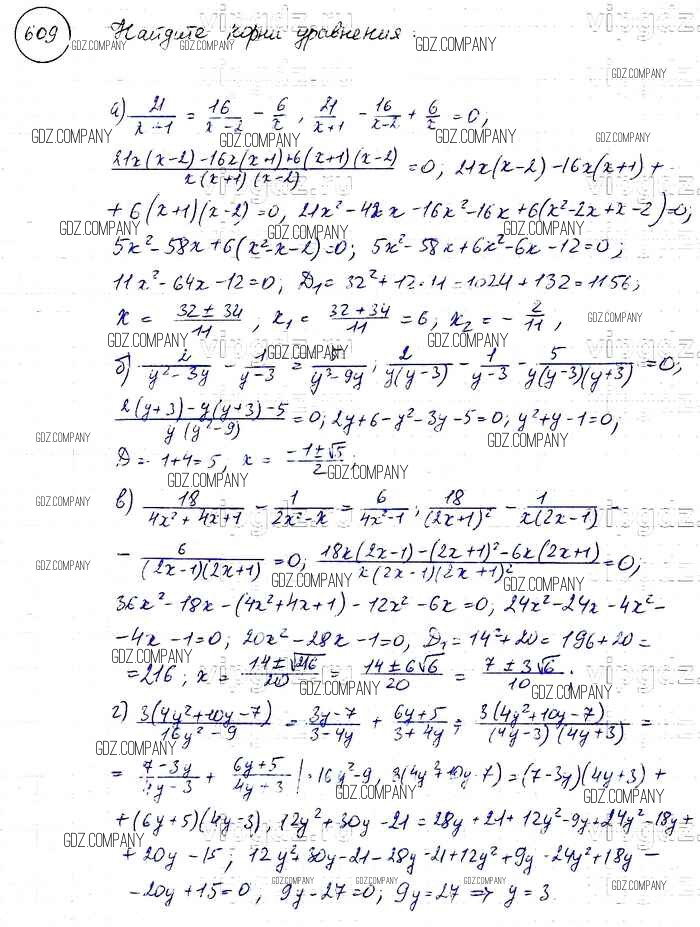 609 Найдите корни уравнения.
а) 21/(x+1) = 16/(x-2) - 6/x, 21/(x+1) - 16/(x-2) + 6/x = 0,
(21x(x-2) - 16x(x+1) + 6(x+1)(x-2))/(x(x+1)(x-2)) = 0; 21x(x-2) - 16x(x+1) +
+ 6(x+1)(x-2) = 0, 21x² - 42x - 16x² - 16x + 6(x² - 2x + x - 2) = 0;
5x² - 58x + 6(x² - x - 2) = 0; 5x² - 58x + 6x² - 6x - 12 = 0;
11x² - 64x - 12 = 0; D₁ = 32² + 12·11 = 1024 + 132 = 1156;
x = (32 ± 34)/11, x₁ = (32 + 34)/11 = 6, x₂ = -2/11,
б) 2/(y² - 3y) - 1/(y-3) = /(y³ - 9y); 2/(y(y-3)) - 1/(y-3) - 5/(y(y-3)(y+3)) = 0,
(2(y+3) - y(y+3) - 5)/(y(y² - 9)) = 0; 2y + 6 - y² - 3y - 5 = 0; y² + y - 1 = 0;
D = 1 + 4 = 5, x = (-1 ± √5)/2;
в) 18/(4x² + 4x + 1) - 1/(2x² - x) = 6/(4x² - 1); 18/(2x+1)² - 1/(x(2x-1)) -
- 6/((2x-1)(2x+1)) = 0; (18x(2x-1) - (2x+1)² - 6x(2x+1))/(x(2x-1)(2x+1)²) = 0;
36x² - 18x - (4x² + 4x + 1) - 12x² - 6x = 0, 24x² - 24x - 4x² -
- 4x - 1 = 0; 20x² - 28x - 1 = 0, D₁ = 14² + 20 = 196 + 20 =
= 216; x = (14 ± √216)/20 = (14 ± 6√6)/20 = (7 ± 3√6)/10;
г) 3(4y² + 10y - 7)/(16y² - 9) = (3y - 7)/(3 - 4y) + (6y + 5)/(3 + 4y); 3(4y² + 10y - 7)/((4y-3)(4y+3)) =
= (7 - 3y)/(4y - 3) + (6y + 5)/(4y + 3) |·16y² - 9, 3(4y² + 10y - 7) = (7 - 3y)(4y + 3) +
+ (6y + 5)(4y - 3), 12y² + 30y - 21 = 28y + 21 + 12y² - 9y + 24y² - 18y +
+ 20y - 15; 12y² + 30y - 21 - 28y - 21 + 12y² + 9y - 24y² + 18y -
- 20y + 15 = 0, 9y - 27 = 0; 9y = 27 ⇒ y = 3
GDZ.COMPANY
vipgdz.ru